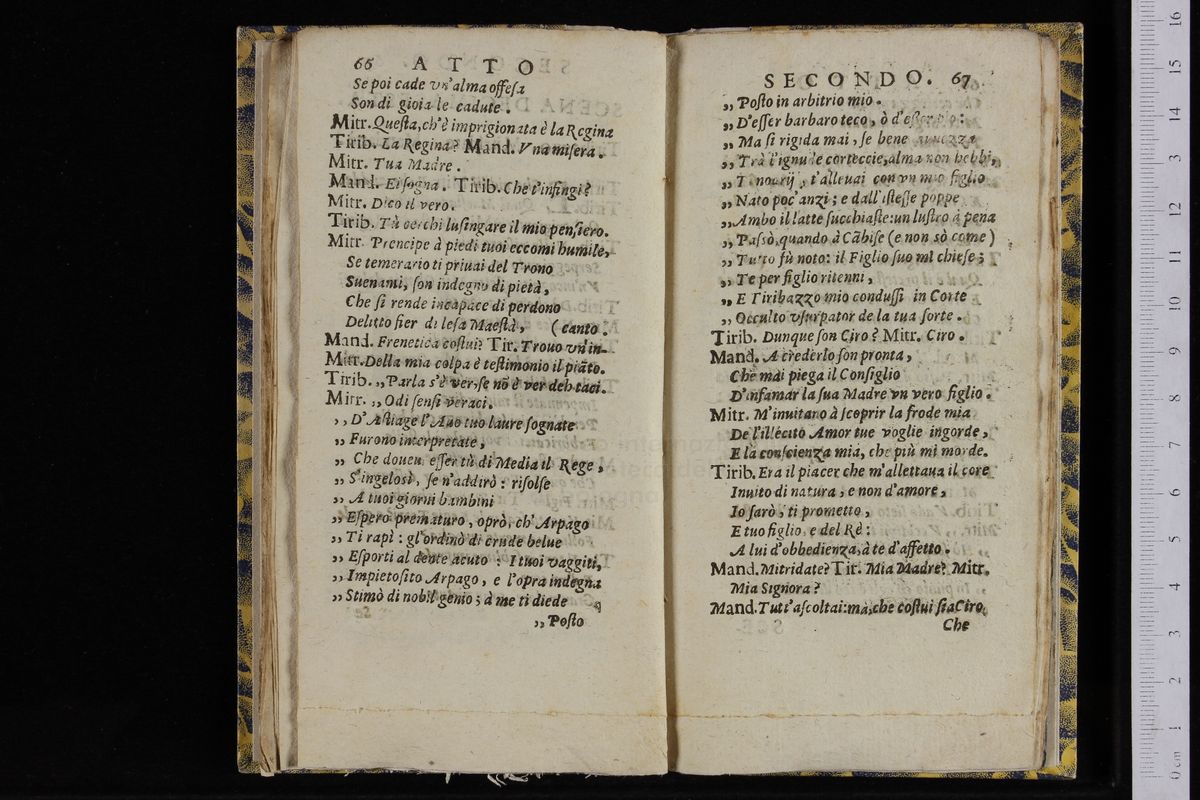 66 ATTO
Se poi cade vn'alma offeſa
Son di gioia le cadute.
Mitr. Queſta, ch'è imprigionata è la Regina
Tirib. La Regina? Mand. Vna miſera.
Mitr. Tua Madre.
Mand. Ei ſogna. Tirib. Che t'infingi?
Mitr. Dico il vero.
Tirib. Tù cerchi luſingare il mio penſiero.
Mitr. Prencipe à piedi tuoi eccomi humile,
Se temerario ti priuai del Trono
Suenami, ſon indegno di pietà,
Che ſi rende incapace di perdono
Delitto fier di leſa Maeſtà, (canto.
Mand. Frenetica coſtui? Tir. Trouo vn'in-
Mitr. Della mia colpa è teſtimonio il piãto.
Tirib. ,,Parla s'è ver-ſe nõ è ver deh taci.
Mitr. ,, Odi ſenſi veraci.
,, D'Aſtiage l'Auo tuo laure ſognate
,, Furono interpretate,
,, Che doueu eſſer tù di Media il Rege,
,, S'ingelosì, ſe n'addirò: riſolſe
,, A tuoi giorni bambini
,, Eſpero prematuro, oprò, ch'Arpago
,, Ti rapì: gl'ordinò di crude belue
,, Eſporti al dente acuto: I tuoi vaggiti,
,, Impietoſito Arpago, e l'opra indegna
,, Stimò di nobil genio; à me ti diede
,, Poſto
SECONDO. 67
,, Poſto in arbitrio mio.
,, D'eſſer barbaro teco, ò d'eſſer
,, Ma ſi rigida mai, ſe bene
,, Trà l'ignude corteccie, alma non hebbi,
,, Ti nourij, t'alleuai con vn mio figlio
,, Nato poc'anzi; e dall'iſteſſe poppe
,, Ambo il latte ſucchiaſte: un luſtro à pena
,, Paſsò, quando à Cãbiſe (e non sò come)
,, Tutto fù noto: il Figlio ſuo mi chieſe;
,, Te per figlio ritenni,
,, E Tiribazzo mio conduſſi in Corte
,, Occulto vſurpator de la tua ſorte.
Tirib. Dunque ſon Ciro? Mitr. Ciro.
Mand. A crederlo ſon pronta,
Che mai piega il Conſiglio
D'infamar la ſua Madre vn vero figlio.
Mitr. M'inuitano à ſcoprir la frode mia
De l'illecito Amor tue voglie ingorde,
E la conſcienza mia, che più mi morde.
Tirib. Era il piacer che m'allettaua il core
Inuito di natura, e non d'amore,
Io ſarò, ti prometto,
E tuo figlio, e del Rè:
A lui d'obbedienza, à te d'affetto.
Mand. Mitridate? Tir. Mia Madre? Mitr.
Mia Signora?
Mand. Tutt'aſcoltai: ma, che coſtui ſia Ciro,
Che